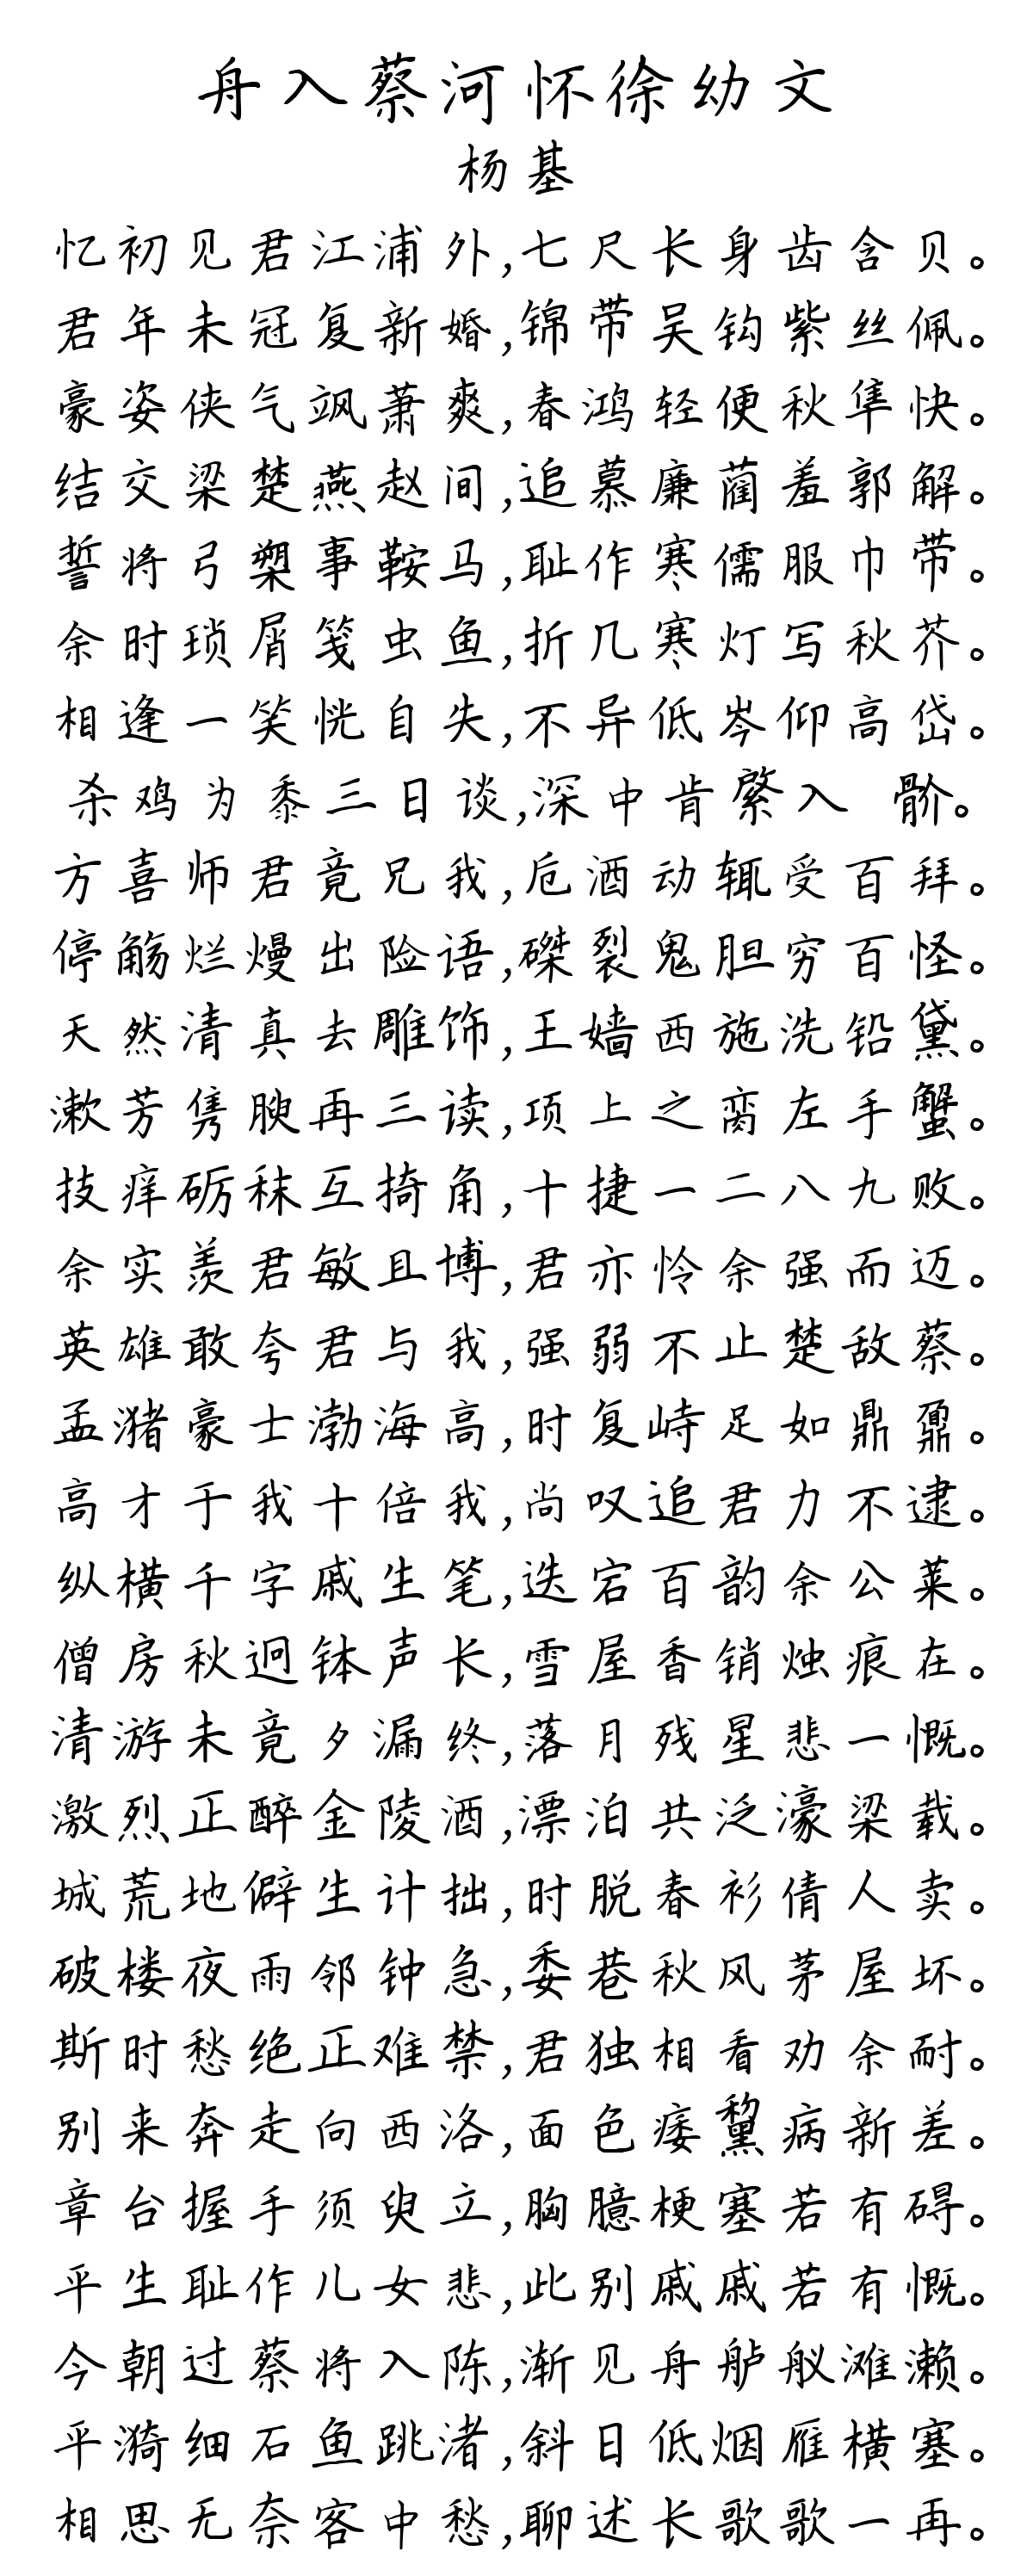 舟入蔡河怀徐幼文
杨基
忆初见君江浦外,七尺长身齿含贝。
君年未冠复新婚,锦带吴钩紫丝佩。
豪姿侠气飒萧爽,春鸿轻便秋隼快。
结交梁楚燕赵间,追慕廉蔺羞郭解。
誓将弓槊事鞍马,耻作寒儒服巾带。
余时琐屑笺虫鱼,折几寒灯写秋芥。
相逢一笑恍自失,不异低岑仰高岱。
杀鸡为黍三日谈,深中肯綮入骱。
方喜师君竟兄我,卮酒动辄受百拜。
停觞烂熳出险语,磔裂鬼胆穷百怪。
天然清真去雕饰,王嫱西施洗铅黛。
漱芳隽腴再三读,项上之脔左手蟹。
技痒砺秣互掎角,十捷一二八九败。
余实羡君敏且博,君亦怜余强而迈。
英雄敢夸君与我,强弱不止楚敌蔡。
孟潴豪士渤海高,时复峙足如鼎鼐。
高才于我十倍我,尚叹追君力不逮。
纵横千字戚生笔,迭宕百韵余公莱。
僧房秋迥钵声长,雪屋香销烛痕在。
清游未竟夕漏终,落月残星悲一慨。
激烈正醉金陵酒,漂泊共泛濠梁载。
城荒地僻生计拙,时脱春衫倩人卖。
破楼夜雨邻钟急,委巷秋风茅屋坏。
斯时愁绝正难禁,君独相看劝余耐。
别来奔走向西洛,面色痿黧病新差。
章台握手须臾立,胸臆梗塞若有碍。
平生耻作儿女悲,此别戚戚若有慨。
今朝过蔡将入陈,渐见舟舻舣滩濑。
平漪细石鱼跳渚,斜日低烟雁横塞。
相思无奈客中愁,聊述长歌歌一再。